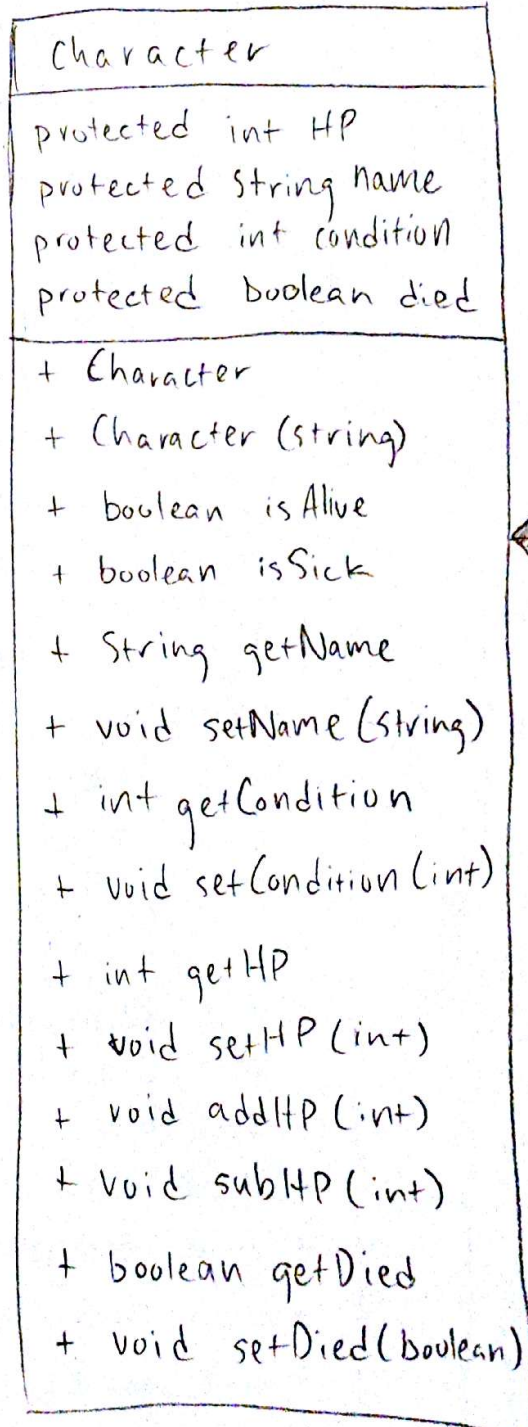 Character
protected int HP
protected String name
protected int condition
protected boolean died
+ Character
+ Character (string)
+ boolean isAlive
+ boolean isSick
+ String getName
+ void setName (string)
+ int getCondition
+ void setCondition (int)
+ int getHP
+ void setHP (int)
+ void addHP (int)
+ void subHP (int)
+ boolean getDied
+ void setDied (boolean)